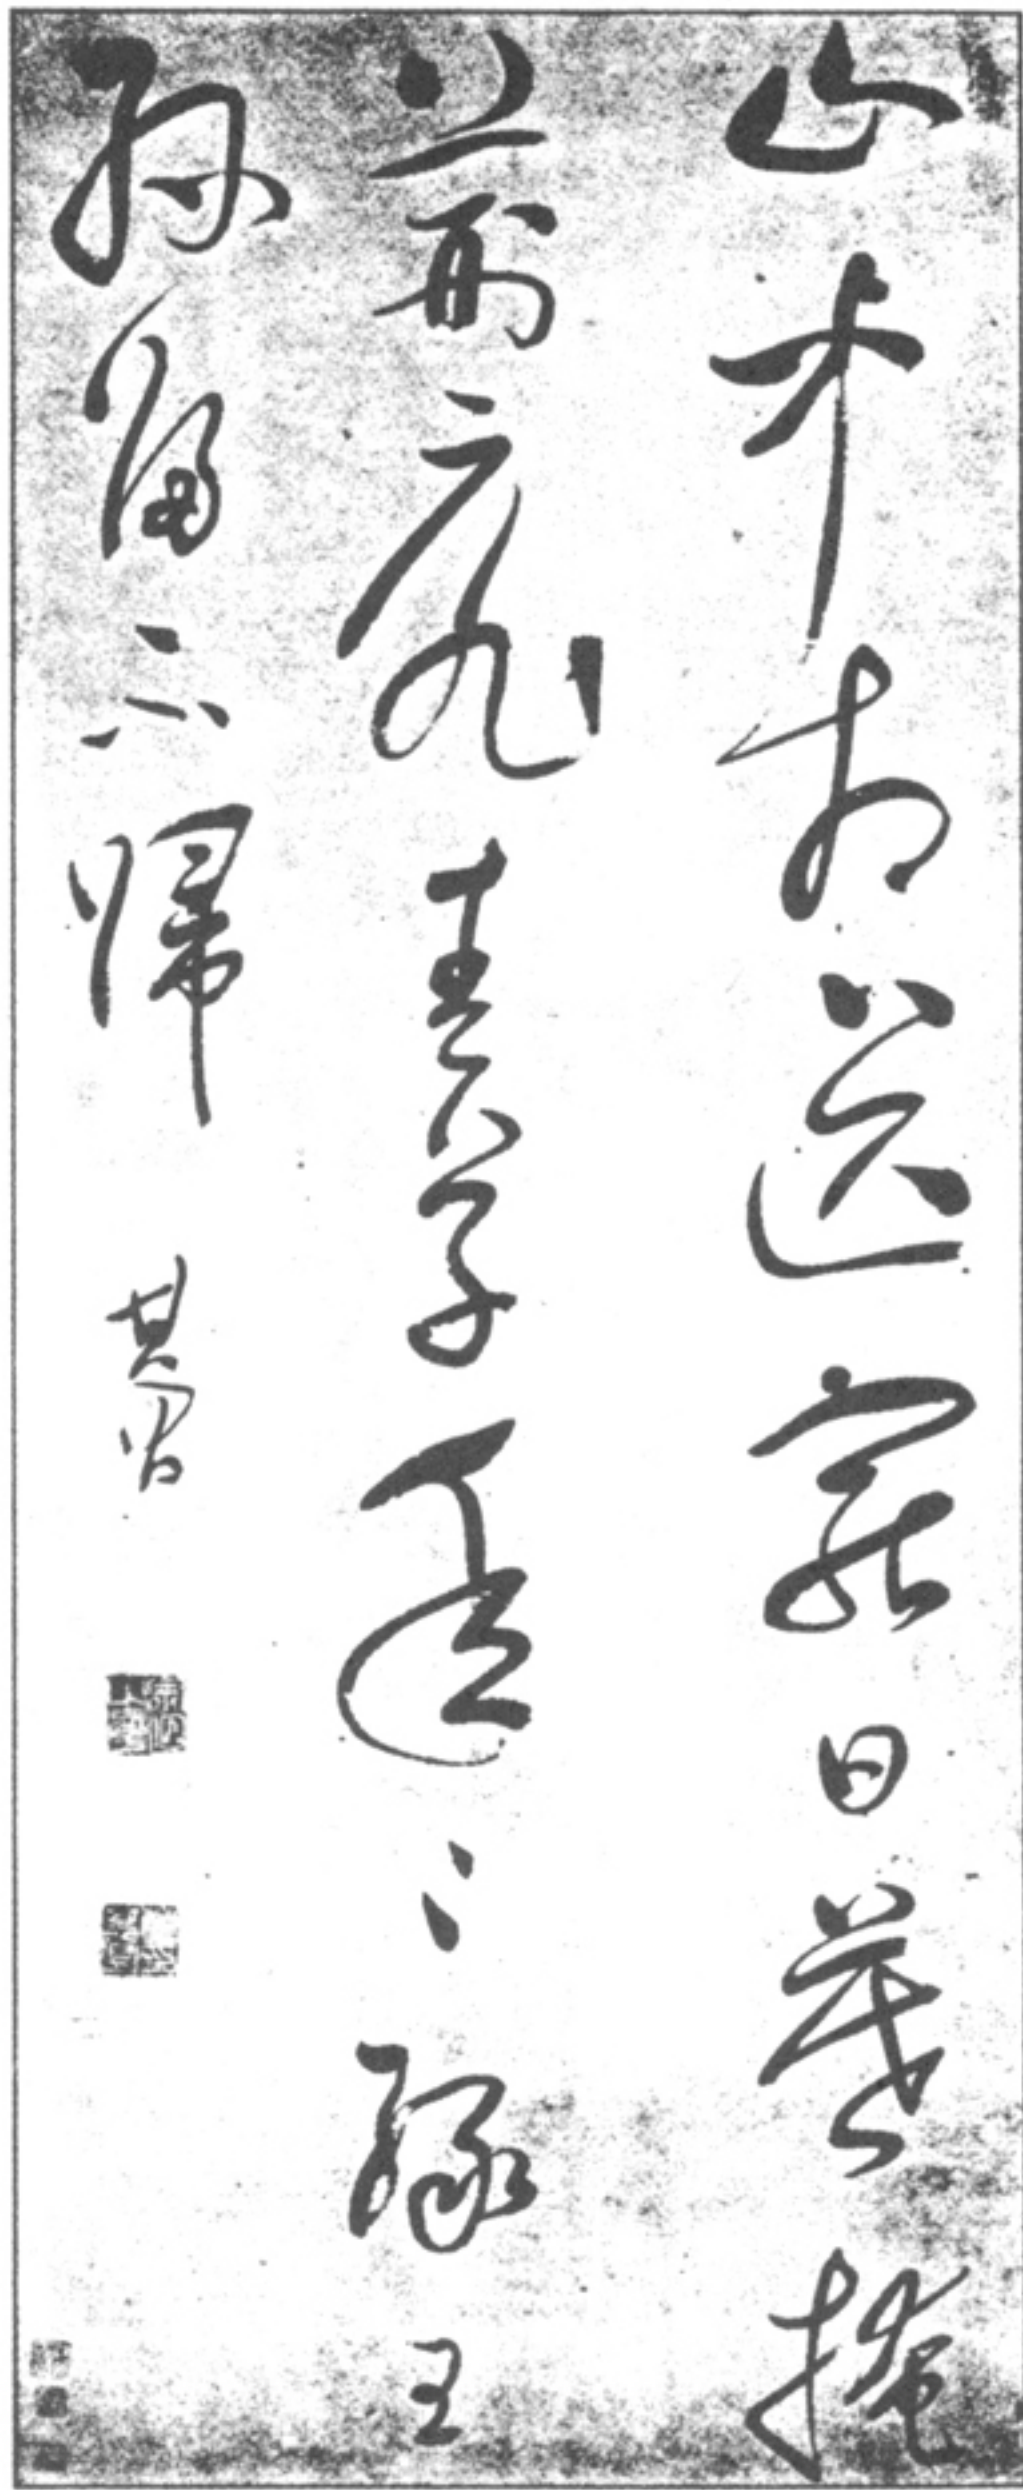 山中相送罷日暮掩
荊扉春草年々綠王
孫歸不歸 其昌